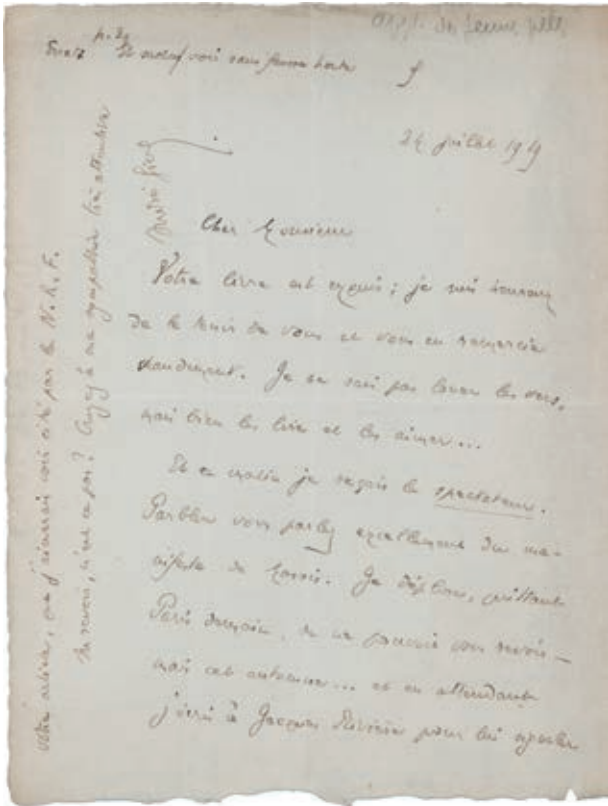 24 juillet 1919
Cher Monsieur
Votre livre est exquis ; je suis heureux
de le tenir de vous et vous en remercie
grandement. Je ne sais pas louer les vers,
mais bien les lire et les aimer...
Et ce matin je reçois le spectateur.
Parbleu vous parlez excellement du ma-
nifeste de Je déplore, quittant
Paris demain, de ne pouvoir vous revoir —
mais cet automne... et en attendant
j'écris à Jacques Rivière pour lui signaler
votre article, que j'aimerais voir cité par la N.R.F.
Au revoir, n'est ce pas? Croyez à ma sympathie bien attentive
André Gide